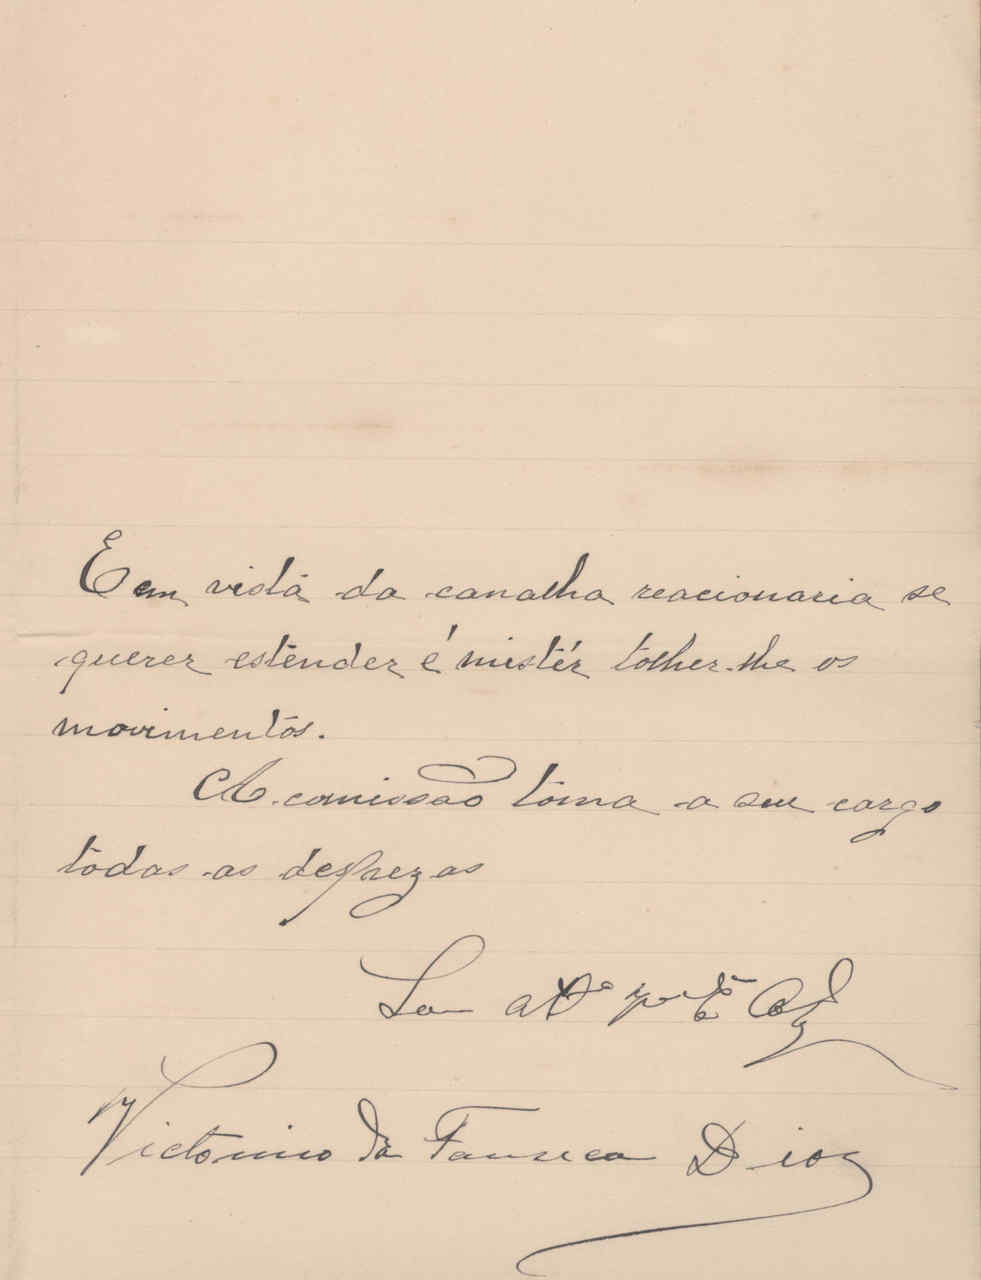 Em vista da canalha reacionaria se
querer estender é mistér tolher-lhe os
movimentos.
A comissão toma a seu cargo
todas as despezas
Victorino da Fonseca Dias